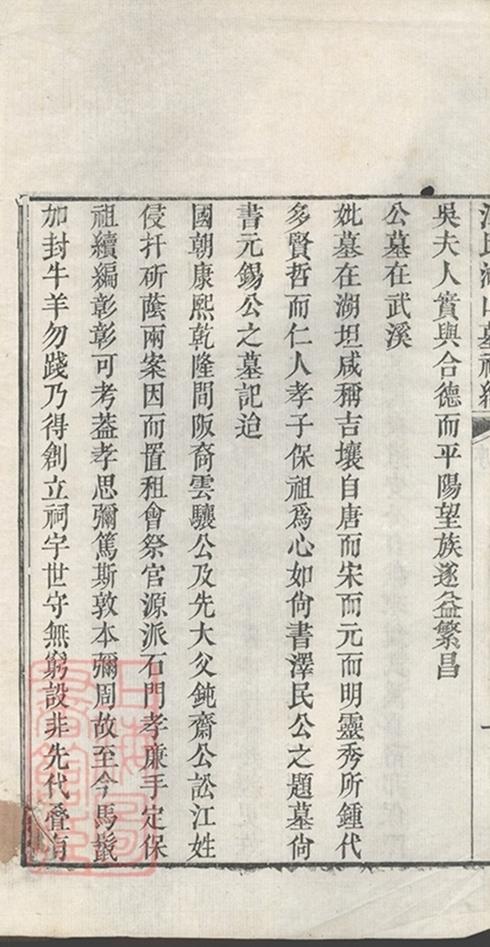 吳夫人實與合德而平陽望族遂益繁昌
公墓在武溪
妣墓在湖坦咸稱吉壤自唐而宋而元而明靈秀所鍾代
多賢哲而仁人孝子保祖爲心如尙書澤民公之題墓尙
書元錫公之墓記迨
國朝康熙乾隆間阪裔雲驤公及先大父鈍齋公訟江姓
侵扦斫蔭兩案因而置租會祭官源派石門孝廉手定保
祖續編彰彰可考葢孝思彌篤斯敦本彌周故至今馬鬛
加封牛羊勿踐乃得創立祠宇世守無窮設非先代叠有